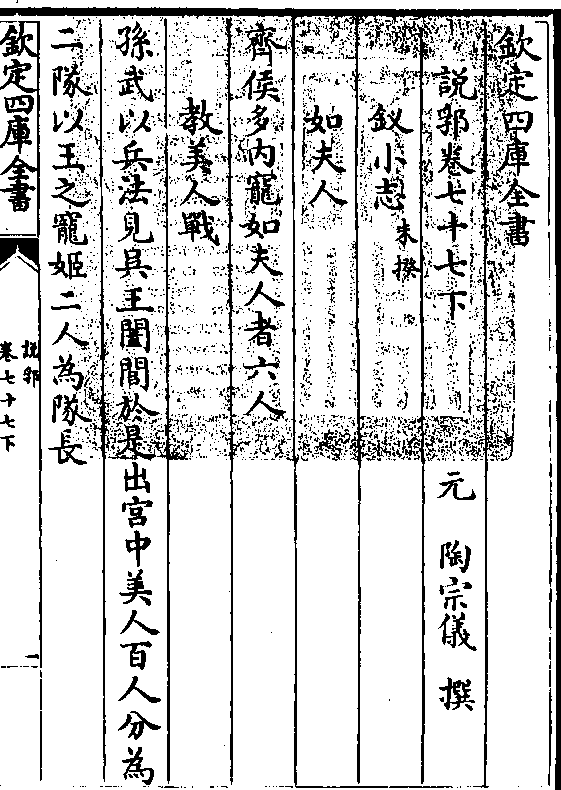 欽定四庫全書
説郛卷七十七下
元 陶宗儀 撰
釵小志 朱揆
如夫人
齊侯多內寵如夫人者六人
教美人戰
孫武以兵法見吳王闔閭於是出宮中美人百人分為
二隊以王之寵姬二人為隊長
欽定四庫全書
説郛
卷七十七下
一